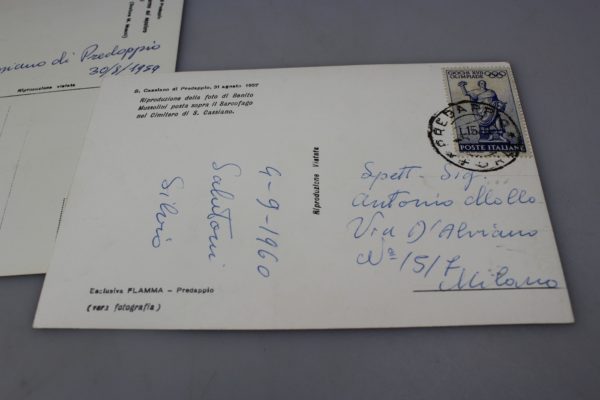 S. Cassiano di Predappio, 31 agosto 1957
Riproduzione della foto di Benito
Mussolini posta sopra il Sarcofago
nel Cimitero di S. Cassiano.
4-9-1960
Salutoni
Silvio
Esclusiva FLAMMA - Predappio
(vera fotografia)
Riproduzione Vietata
GIOCHI XVII
OLIMPIADE
POSTE ITALIANE
PREDAPPIO
Spett. Sig.
Antonio Mollo
Via D'Alviano
Nº 15/7
Milano
di Predappio
30/8/1959
Riproduzione vietata